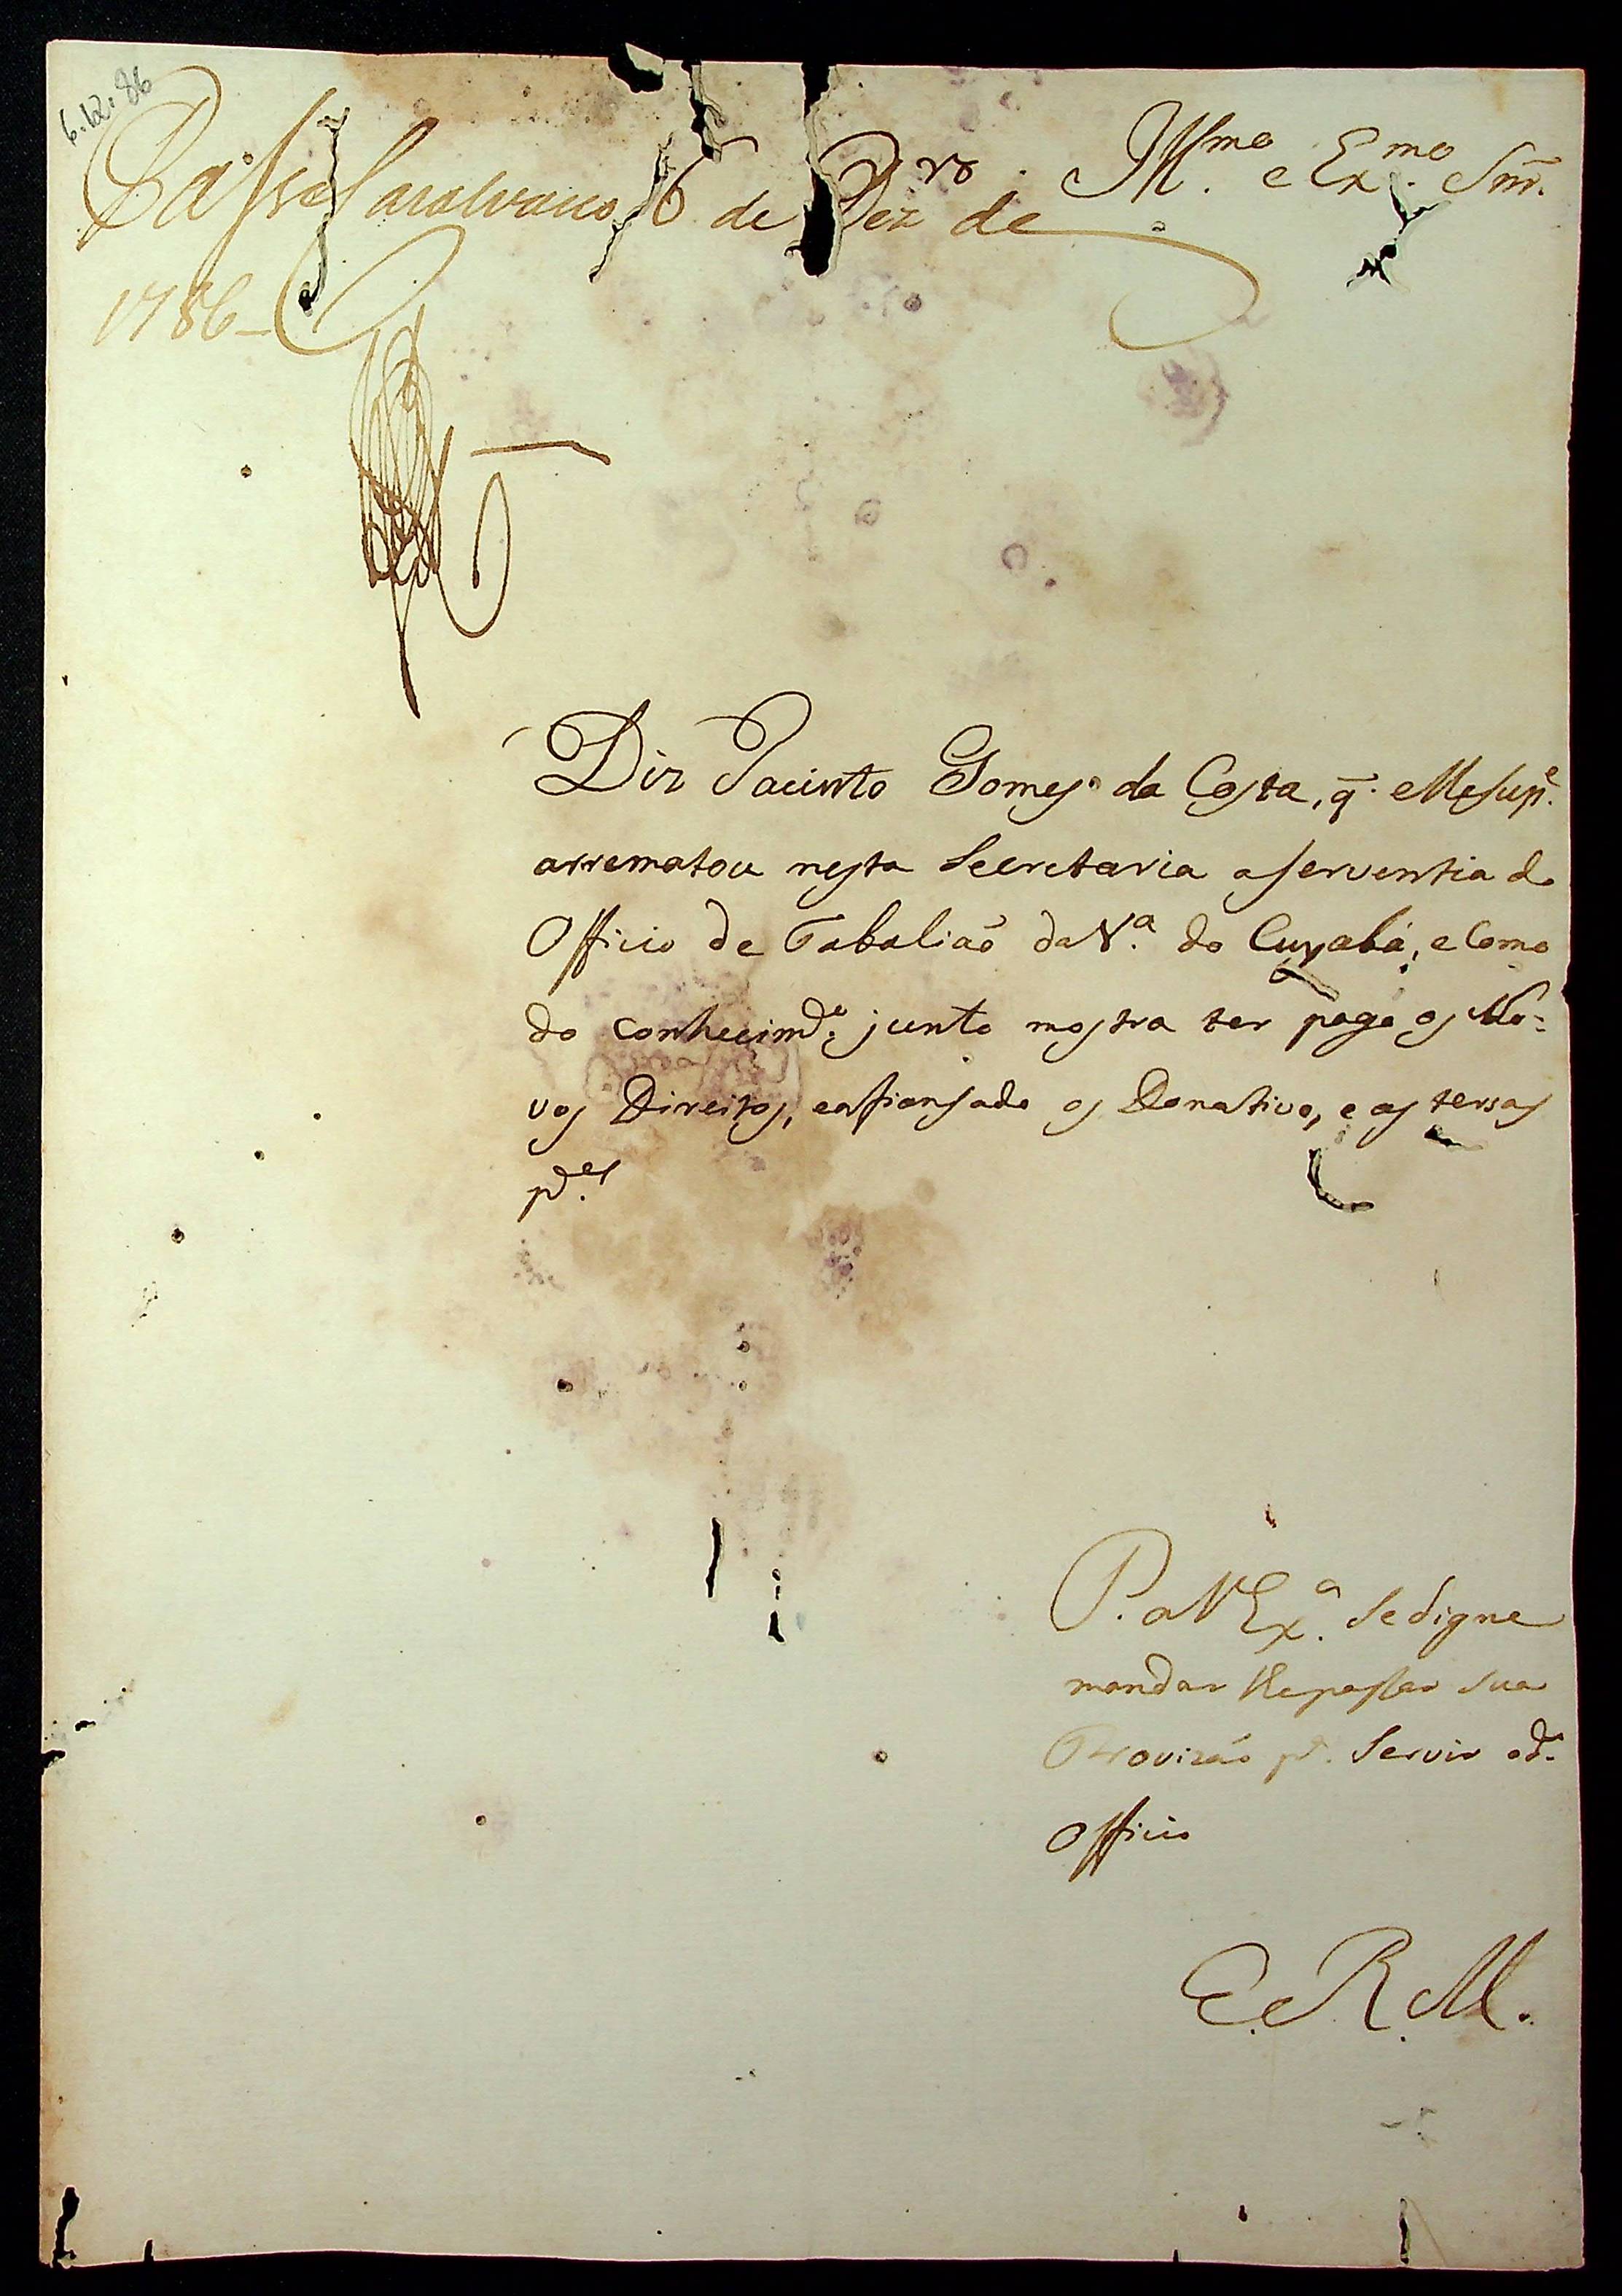 6.12.86
Illmo. e Exmo. Snr.
Passe 6 de Dezro de
1786
Diz Jacinto Gomes da Costa, q̃. elle supe.
arrematou nesta Secretaria a serventia do
Officio de Tabaliaõ da Va. do Cuyabá, e como
do conhecimto. junto mostra ter pago os No-
vos Direitos, eafiansado os Donativos, e as tersas
ptes.
P. a V Exa. se digne
mandar Repassar sua
Provizaõ pa. servir o do.
Officio
E. R. M.